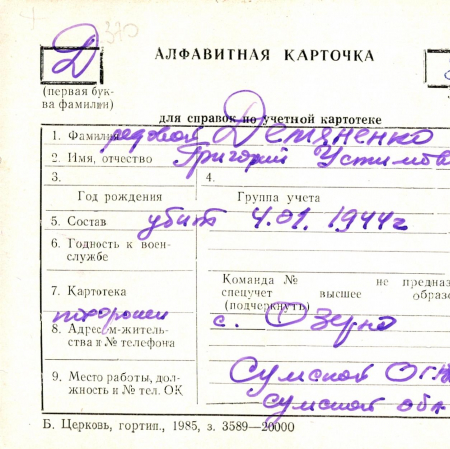 Д 370
АЛФАВИТНАЯ КАРТОЧКА
(первая бук-
ва фамилии)
для справок по учетной картотеке
1. Фамилия рядовой Демяненко
2. Имя, отчество Григорий Устимов
3. 4.
Год рождения Группа учета
5. Состав убит 4.01.1944г
6. Годность к воен-
службе
Команда № не предназ
7. Картотека спецучет высшее образо
(подчеркнуть)
похоронен с. Озерно
8. Адрес м-житель-
ства и № телефона
Сумской
9. Место работы, дол-
жность и № тел. ОК
сумской обл
Б. Церковь, гортип., 1985, з. 3589—20000